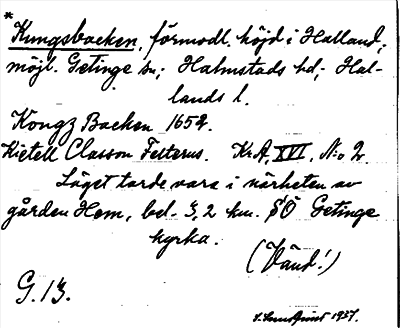 *
Kungsbacken, förmodl. höjd i Halland;
möjl. Getinge sn; Halmstads hd, Hal-
lands l.
Kongz Backen 1652.
Kietell Classon Felterus. Kr.A, XVI, No 2.
Läget torde vara i närheten av
gården Hem, bel. 3,2 km. SÖ Getinge
kyrka.
(Vänd!)
G. 13.
1937.